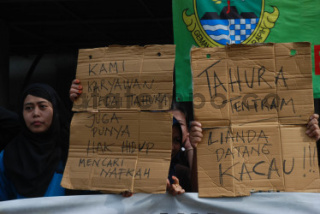 KAMI
KARYAWAN
JUGA
PUNYA
HAK HIDUP
MENCARI
NAFKAH
TAHURA
TENTRAM
LIANDA
DATANG
KACAU !!!